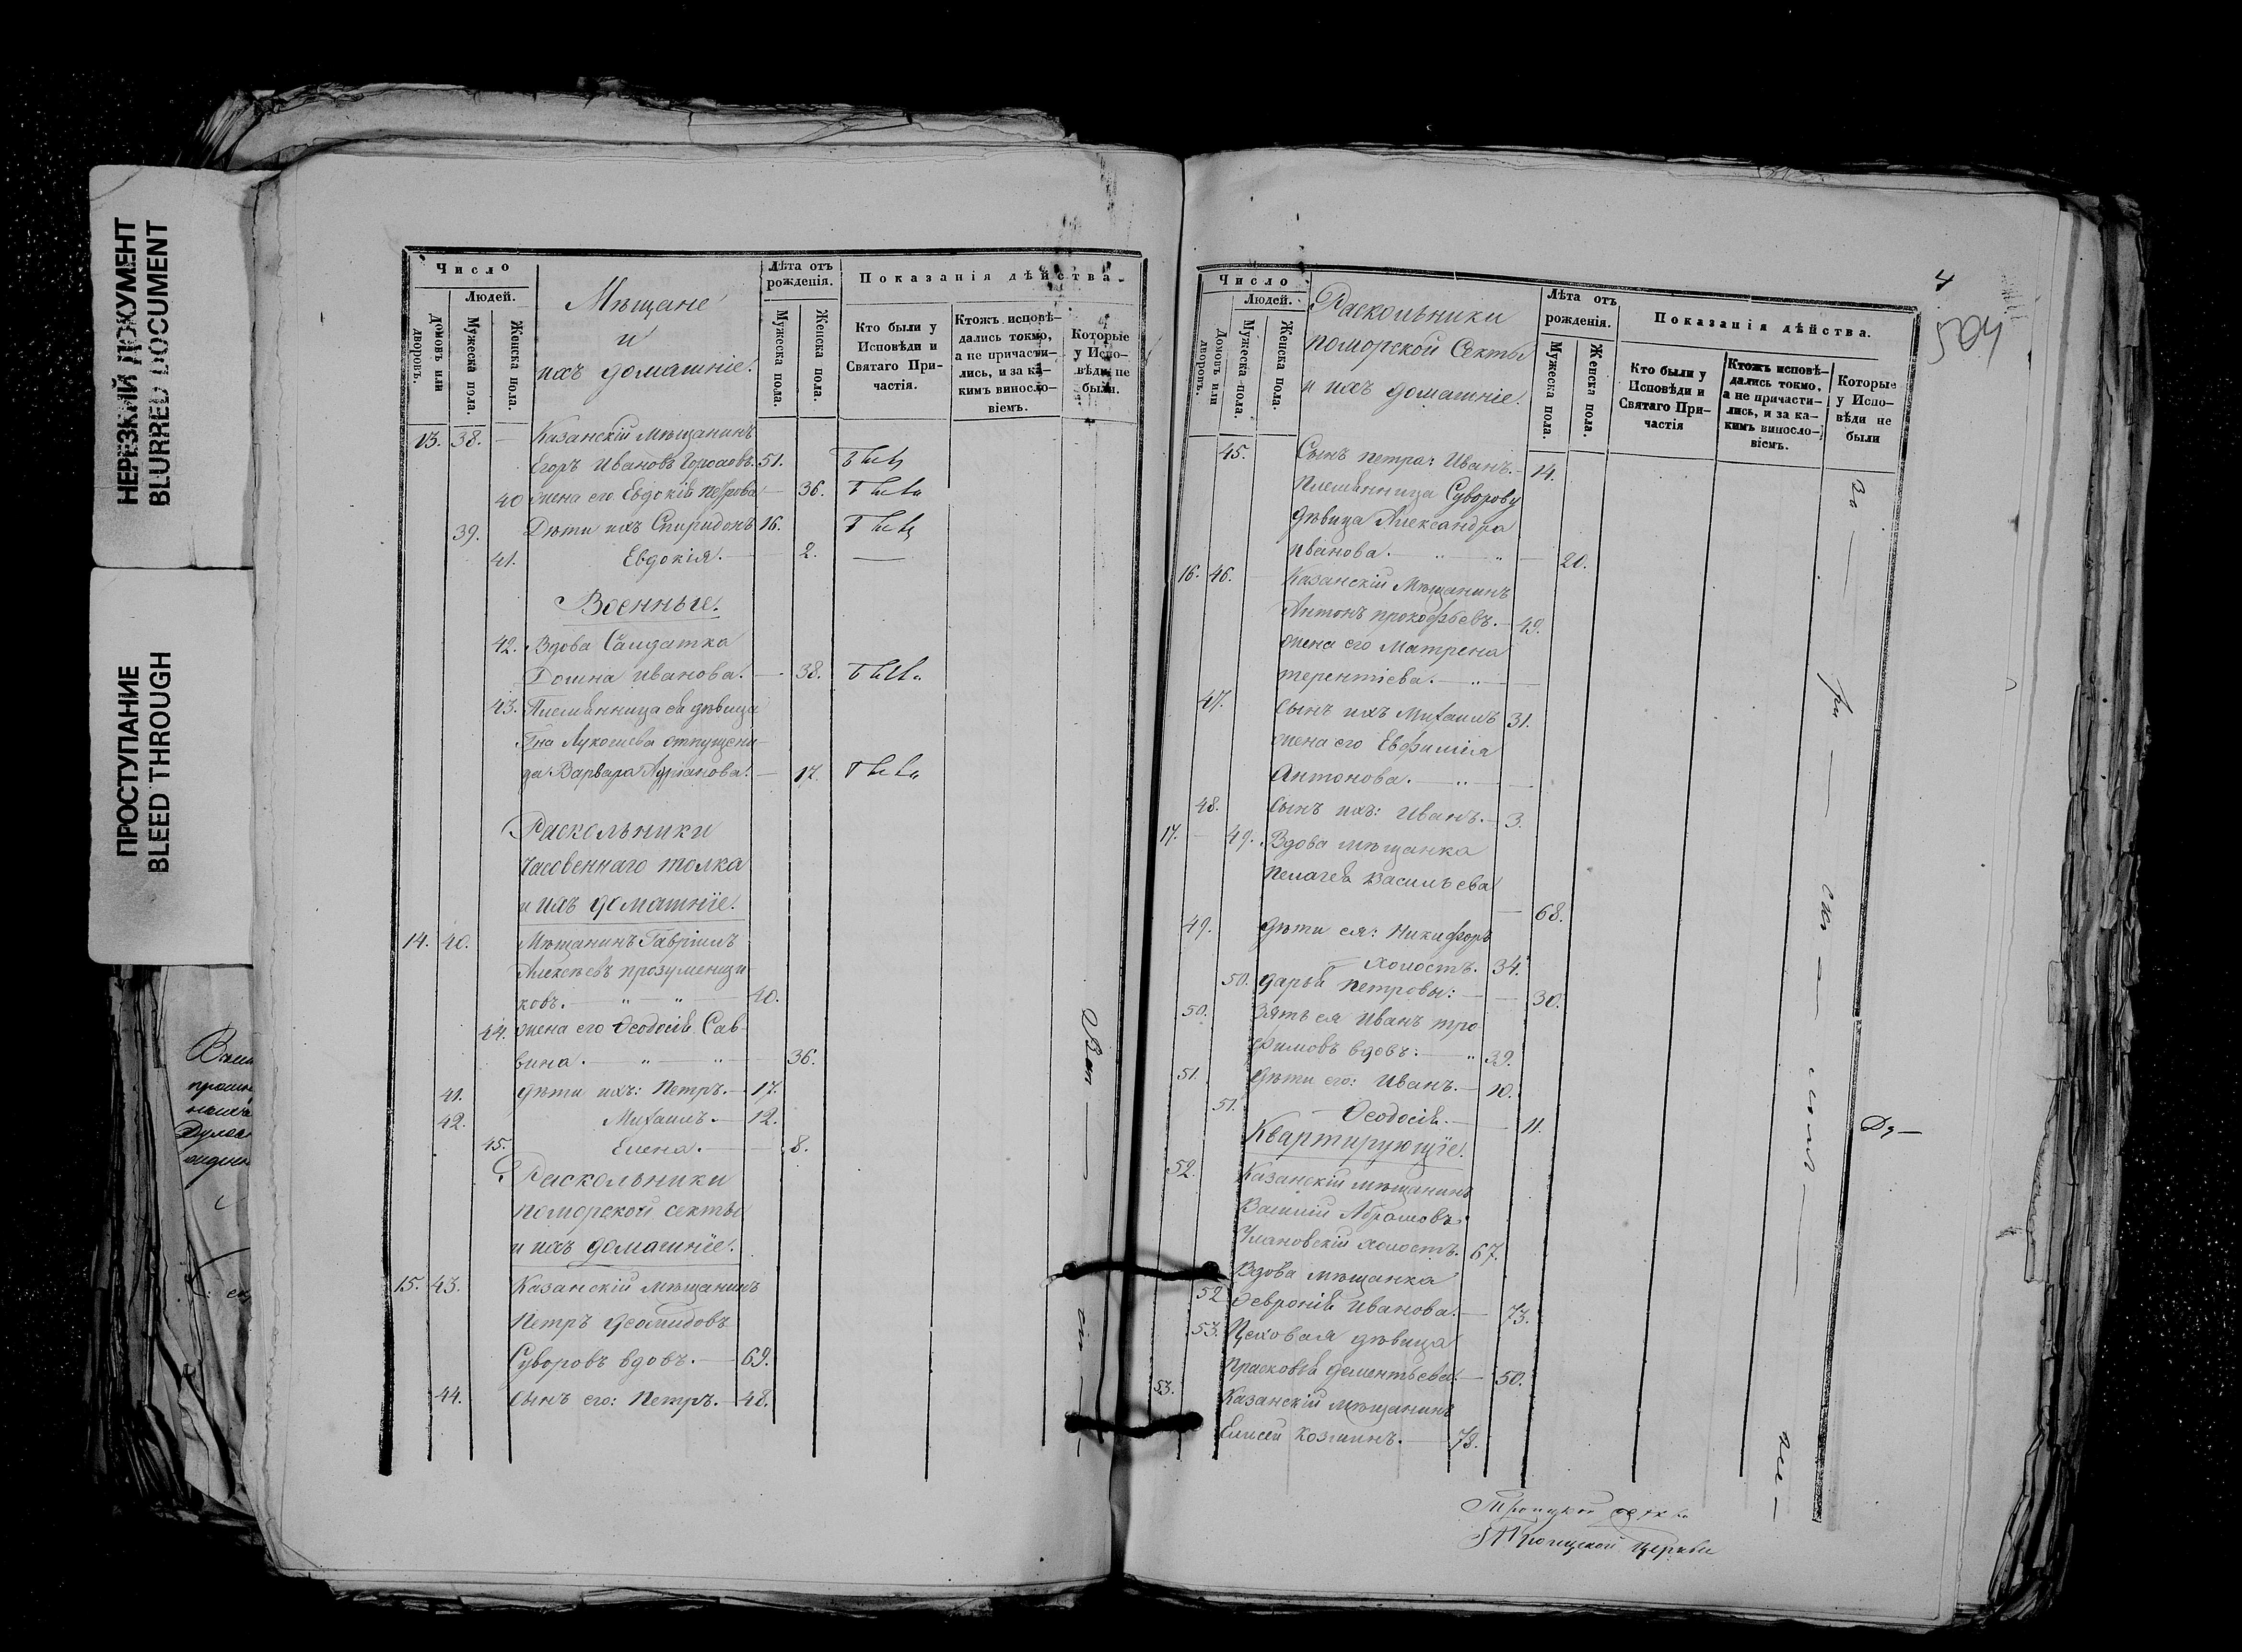 НЕРЕЗКИЙ ДОКУМЕНТ
BLURRED DOCUMENT
ПРОСТУПАНИЕ
BLEED THROUGH
Число
Людей.
Домовъ или дворовъ.
Мужеска пола.
Женска пола.
Мѣщане
и
ихъ домашніе.
Лѣта отъ рожденія.
Мужеска пола.
Женска пола.
Показанія дѣйства.
Кто были у Исповѣди и Святаго Причастія.
Ктожъ исповѣдались токмо, а не причастились, и за какимъ винословіемъ.
Которые у Исповѣди не были.
13. 38. — Казанскій Мѣщанинъ
Егоръ Ивановъ 51.
40 жена его Евдокія Петрова — 36.
39. Дѣти ихъ Спиридонъ 16.
41. Евдокія. — 2. —
Военные.
42. Вдова Салдатка
Иванова. — 38.
43. Племянница ея дѣвица
Варвара — 17.
Раскольники
Часовеннаго толка
и ихъ домашніе.
14. 40. Мѣщанинъ Гавріилъ
Алексѣевъ прозуменщи-
ковъ. — „ „ 40.
44. жена его Ѳеодосія Сав-
вина. — „ „ — 36.
41. дѣти ихъ: Петръ. — 17.
42. Михаилъ. — 12.
45. Елена. — 8.
Раскольники
поморской секты
и ихъ домашніе.
15. 43. Казанскій мѣщанинъ
Петръ
Суворовъ вдовъ. — 69.
44. сынъ его: Петръ. — 48.
4
504
Число
Людей.
Домовъ или дворовъ.
Мужеска пола.
Женска пола.
Раскольники
поморской Секты
и ихъ домашніе.
Лѣта отъ рожденія.
Мужеска пола.
Женска пола.
Показанія дѣйства.
Кто были у Исповѣди и Святаго Причастія
Ктожъ исповѣдались токмо, а не причастились, и за какимъ винословіемъ.
Которые у Исповѣди не были
45. Сынъ петра: Иванъ. — 14.
Племянница Суворову
дѣвица Александра
иванова. — „ „ — 20.
16. 46. — Казанскій Мѣщанинъ
Антонъ прокофьевъ. — 49.
жена его Матрена
терентіева. — „ —
47. Сынъ ихъ Михаилъ 31.
жена его Евфимія
Антонова. — „ —
48. Сынъ ихъ: Иванъ. — 3.
17. — 49. Вдова мѣщанка
Пелагея Васильева
— 68.
49. дѣти ея: Никифоръ
холостъ. 34.
50. дарья Петровы: — 30.
50. Зять ея Иванъ тро-
фимовъ вдовъ: — „ 39.
51. дѣти его: Иванъ. — 10.
51. Ѳеодосія. — 11.
Квартирующіе.
52. Казанскій мѣщанинъ
Василій Абрамовъ
Улановскій холостъ. 67.
Вдова мѣщанка
52 Ѳевронія Иванова. — 73.
53. Цеховая дѣвица
Прасковья дементьева. — 50.
53. Казанскій мѣщанинъ
Елисей Козминъ. — 78.
Троицкой Церкви